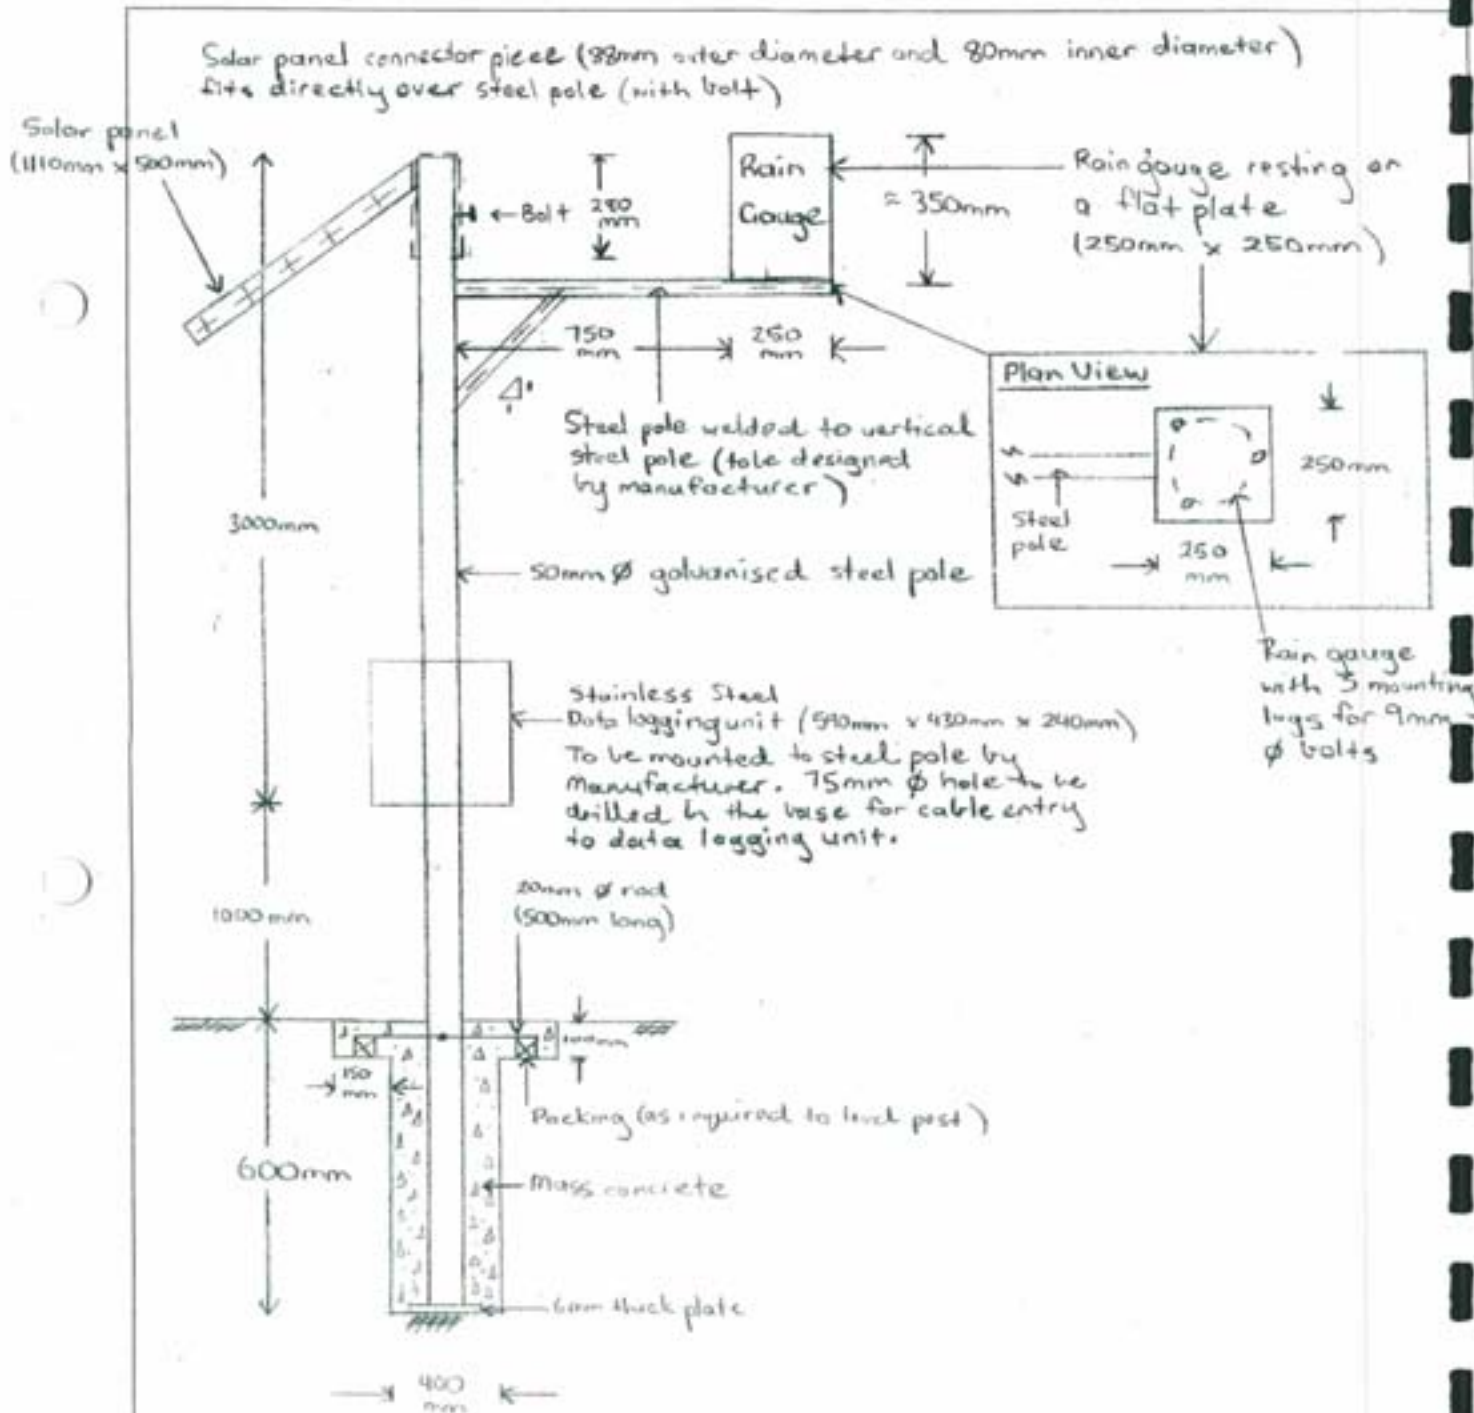 Solar panel connector piece (88mm outer diameter and 80mm inner diameter)
fits directly over steel pole (with bolt)
Solar panel
(1110mm x 500mm)
Bolt
280
mm
Rain
Gauge
≈ 350mm
Rain gauge resting on
a flat plate
(250mm x 250mm)
750
mm
250
mm
1
1
Plan View
250mm
Steel
pole
250
mm
Steel pole welded to vertical
steel pole (to be designed
by manufacturer)
3000mm
50mm Ø galvanised steel pole
Rain gauge
with 3 mounting
lugs for 9mm
Ø bolts
Stainless Steel
Data logging unit (590mm x 430mm x 240mm)
To be mounted to steel pole by
manufacturer. 75mm Ø hole to be
drilled in the base for cable entry
to data logging unit.
20mm Ø rod
(500mm long)
1000mm
100mm
150
mm
Packing (as required to level post)
600mm
Mass concrete
6mm thick plate
400
mm